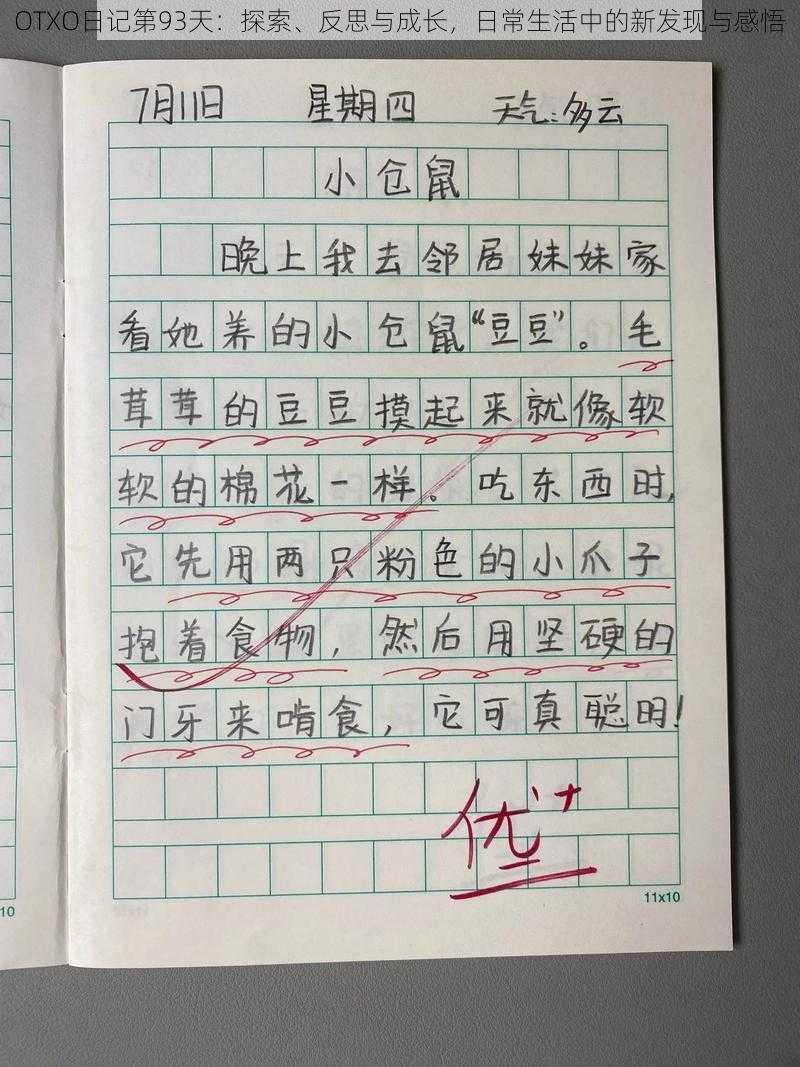 OTXO日记第93天：探索、反思与成长，日常生活中的新发现与感悟
7月11日 星期四 天气:多云
小仓鼠
晚上我去邻居妹妹家
看她养的小仓鼠“豆豆”。毛
茸茸的豆豆摸起来就像软
软的棉花一样。吃东西时,
它先用两只粉色的小爪子
抱着食物，然后用坚硬的
门牙来啃食，它可真聪明!
优+
11x10
10